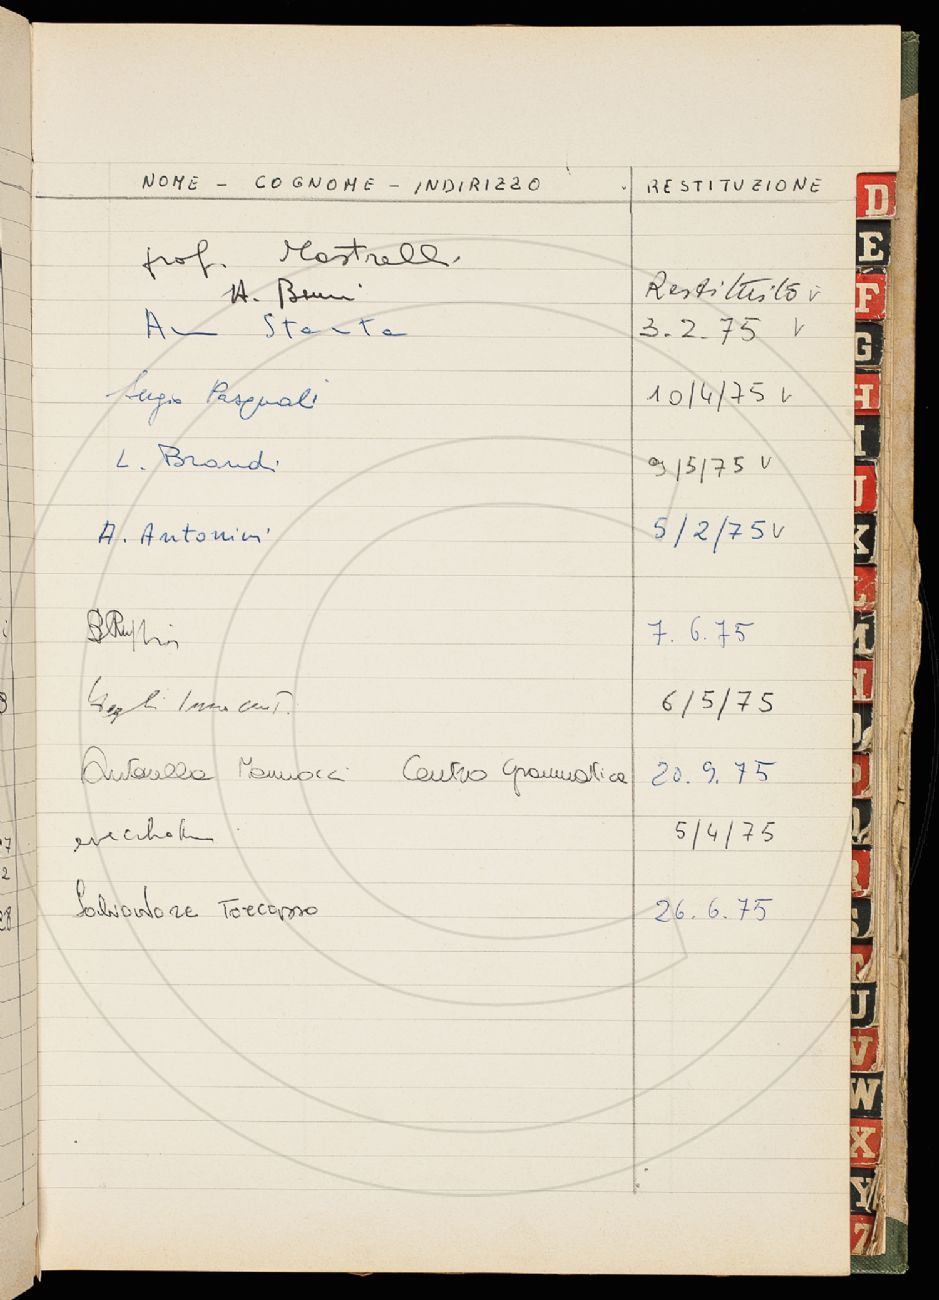 NOME - COGNOME - INDIRIZZO RESTITUZIONE
prof. Mastrelli
A. Benni Restituito v
3.2.75 v
Sergio Pasquali 10/4/75 v
L. Brandi 9/5/75 v
A. Antonini 5/2/75 v
7.6.75
Degli Innocenti 6/5/75
Antonella Mannocci Centro Grammatica 20.9.75
5/4/75
Salvatore Torcasso 26.6.75
i
8
07
2
28
D
E
F
G
H
I
J
K
L
M
N
O
P
Q
R
S
T
U
V
W
X
Y
Z